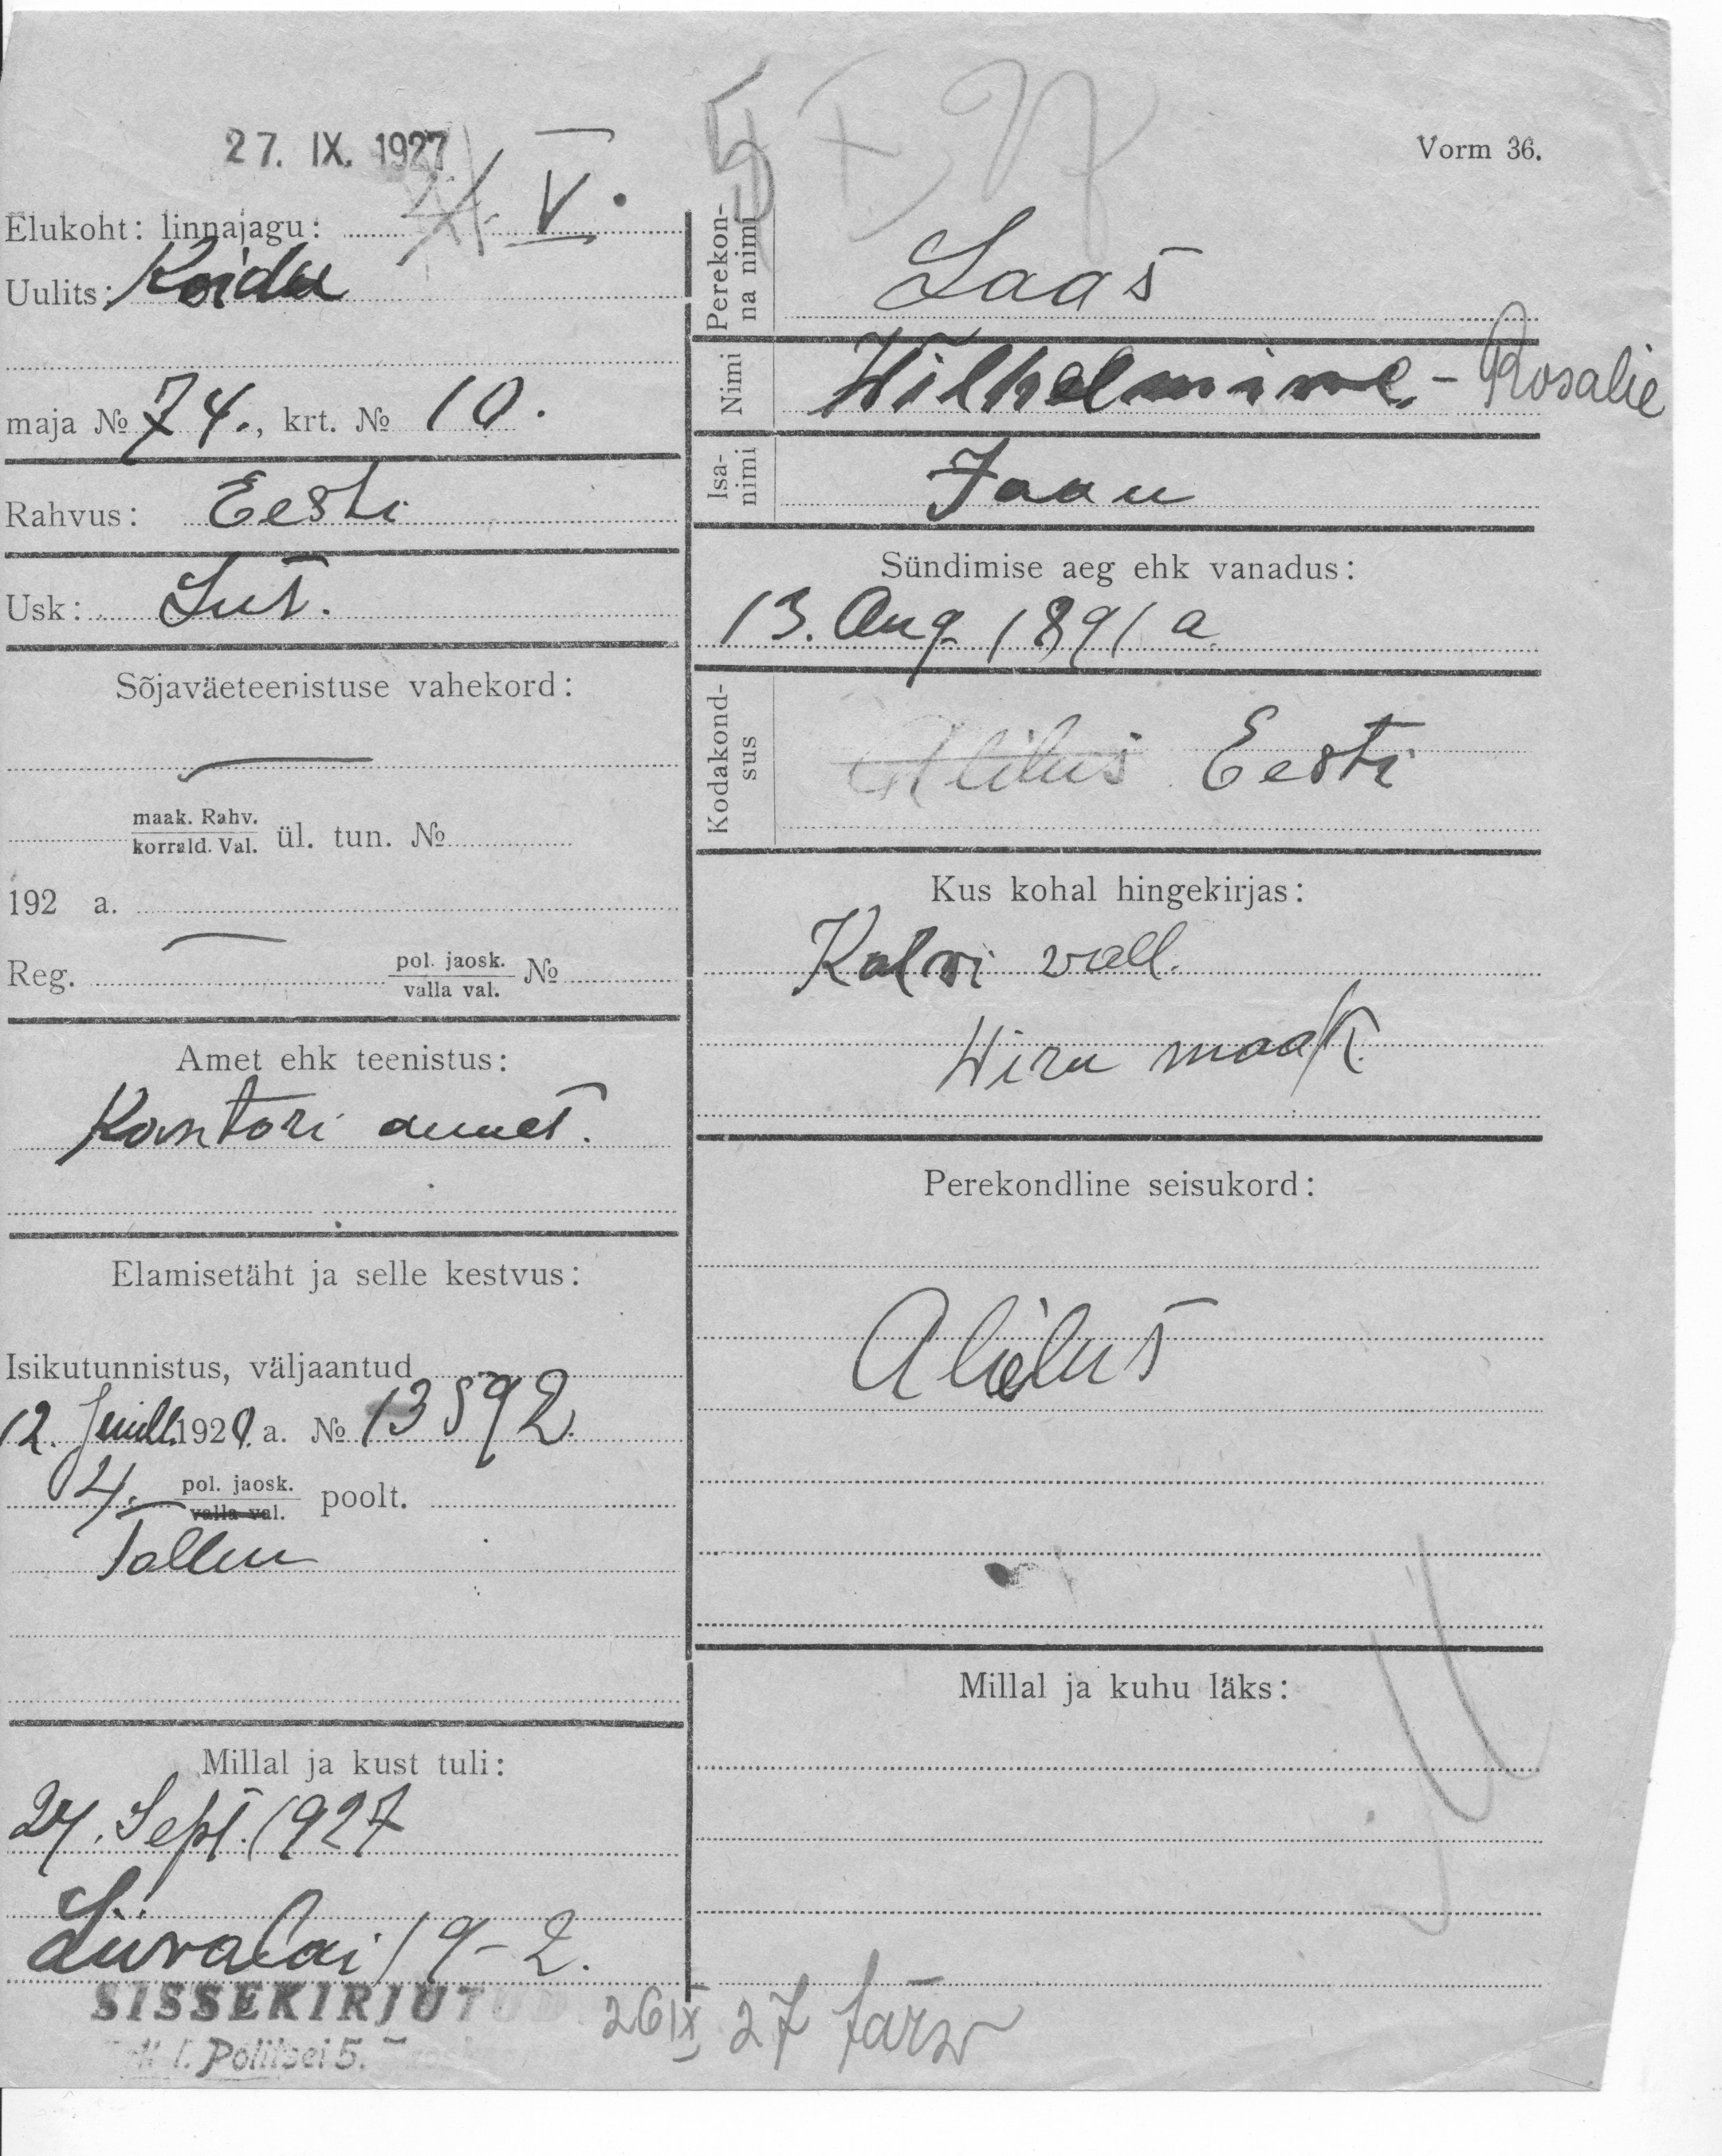 27. IX. 1927
5 X 27
Vorm 36.
Elukoht: linnajagu: V.
Uulits: Koidu
maja № 74., krt. № 10.
Rahvus: Eesti
Usk: Lut.
Sõjaväeteenistuse vahekord:
maak. Rahv.
korrald. Val. ül. tun. №
192 a.
Reg. pol. jaosk. №
valla val.
Amet ehk teenistus:
Kontori amet.
Elamisetäht ja selle kestvus:
Isikutunnistus, väljaantud
12. Juuli 1920. a. № 13592
4. pol. jaosk. poolt.
valla val.
Tallin
Millal ja kust tuli:
24. Sept. 1927
Liivalai 19-2.
SISSEKIRJUTUD
Politsei 5.
Perekon-
na nimi
Laas
Nimi
Wilhelmine - Rosalie
Isa-
nimi
Jaan
Sündimise aeg ehk vanadus:
13. Aug. 1891 a.
Kodakond-
sus
Allikus Eesti
Kus kohal hingekirjas:
Kalvi vall.
Wiru maak.
Perekondline seisukord:
Millal ja kuhu läks:
26 IX 27